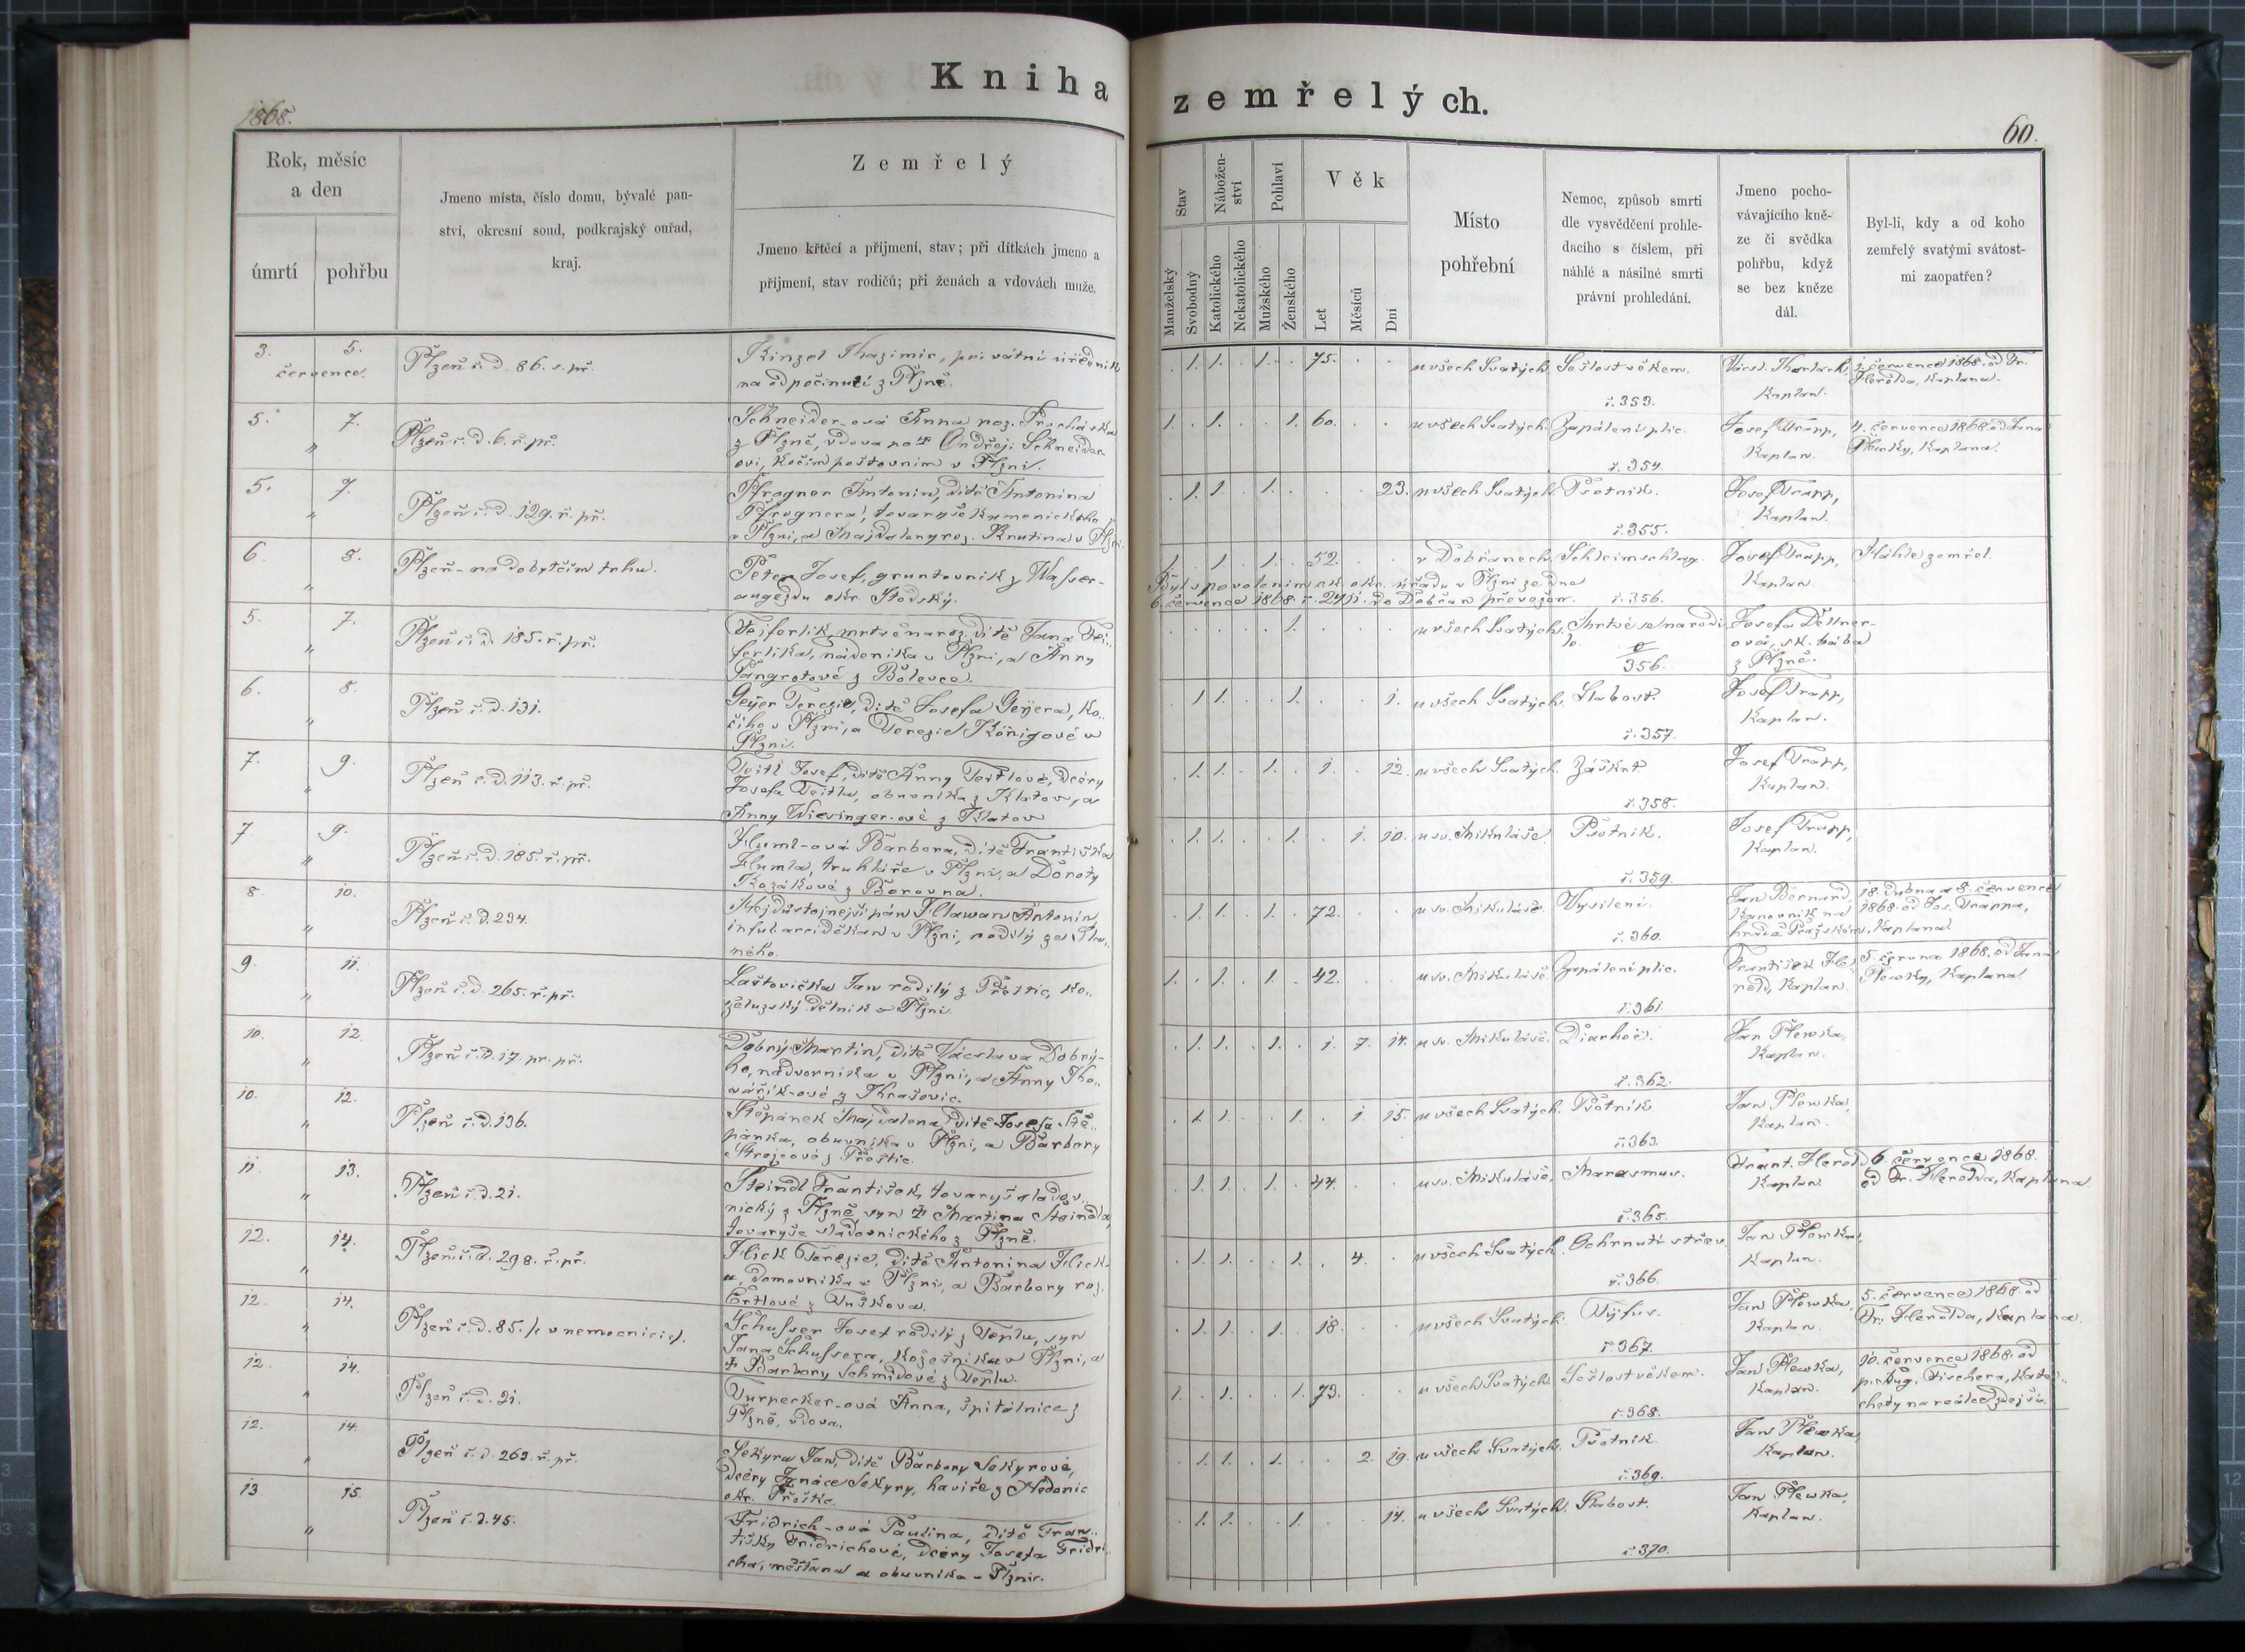 Kniha
zemřelých.
1868.
60.
Rok, měsíc
a den
úmrtí
pohřbu
Jmeno místa, číslo domu, bývalé pan-
ství, okresní soud, podkrajský ouřad,
kraj.
Zemřelý
Jmeno křtěcí a příjmení, stav; při dítkách jmeno a
příjmení, stav rodičů; při ženách a vdovách muže.
Stav
Manželský
Svobodný
Nábožen-
ství
Katolického
Nekatolického
Pohlaví
Mužského
Ženského
Věk
Let
Měsíců
Dní
Místo
pohřební
Nemoc, způsob smrti
dle vysvědčení prohle-
dacího s číslem, při
náhlé a násilné smrti
právní prohledání.
Jmeno pocho-
vávajícího kně-
ze či svědka
pohřbu, když
se bez kněze
dál.
Byl-li, kdy a od koho
zemřelý svatými svátost-
mi zaopatřen?
3. 5.
července.
Plzeň č. d. 86. s. př.
na odpočinutí z Plzně.
. 1. 1. . 1. . 75. . .
u všech Svatých. Sešlost věkem.
č. 353.
Kaplan.
1. července 1868. od Fr.
Herolda, Kaplana.
5. 7.
"
Plzeň č. d. 6. ř. př.
Schneider-ová Anna roz. Procházka
z Plzně, vdova po ✝ Ondřeji Schneider-
ovi, kočím poštovním v Plzni.
1. . 1. . . 1. 60. . .
u všech Svatých. Zapálení plic.
č. 354.
Josef Trapp,
Kaplan.
4. července 1868. od Jana
Plewky, Kaplana.
5. 7.
"
Plzeň č. d. 129. ř. př.
Pfrogner Antonin, dítě Antonina
Pfrognera, tovaryše kamenického
v Plzni, a Majdaleny roz. Knutina v Plzni.
. 1. 1. . 1. . . . 23.
u všech Svatých. Psotník.
č. 355.
Josef Trapp,
Kaplan.
6. 8.
"
Plzeň - na dobytčím trhu.
Peter Josef, gruntovník z Wasser-
augezdu okr. Stodský.
1. . 1. . 1. . 52. . .
v Dobřanech. Schleimschlag.
Josef Trapp,
Kaplan.
Náhle zemřel.
Byl s povolením ck. okr. úřadu v Plzni ze dne
6. července 1868. č. do Dobřan převezen. č. 356.
5. 7.
"
Plzeň č. d. 185. ř. př.
Fejferlik, mrtvě naroz. dítě Jana Fej-
ferlika, nádeníka v Plzni, a Anny
Pangrotové z Bolevce.
u všech Svatých. Mrtvé se narodi-
lo.
356.
Josefa Döllner-
ová, zk. bába
z Plzně.
6. 8.
"
Plzeň č. d. 131.
Geÿer Terezie, dítě Josefa Geÿera, ko-
čího v Plzni, a Terezie Königové v
Plzni.
. 1. 1. . . 1. . . 1.
u všech Svatých. Slabost.
č. 357.
Josef Trapp,
Kaplan.
7. 9.
"
Plzeň č. d. 113. ř. př.
Teitl Josef, dítě Anny Teitlové, dcery
Josefa Teitla, obuvníka z Klatov, a
Anny Wiesinger-ové z Klatov
. 1. 1. . 1. . 1. . 12.
u všech Svatých. Záškrt.
č. 358.
Josef Trapp,
Kaplan.
7 9.
"
Plzeň č. d. 185. ř. př.
Huml-ová Barbora, dítě Františka
Humla, truhláře v Plzni, a Doroty
Kozákové z Borovna.
. 1. 1. . . 1. . 1. 10.
u sv. Mikuláše. Psotník.
č. 359.
Josef Trapp,
Kaplan.
8 10.
"
Plzeň č. d. 234.
Nejdůstojnejší pán Hlawan Antonin,
inful. arciděkan v Plzni, rodilý
. 1. 1. . 1. . 72. . .
u sv. Mikuláše. Vysílení.
č. 360.
Jan Bernard,
Kanovník na
hradě Pražském.
18. dubna a 8. července
1868. od Jos. Trappa,
Kaplana.
9. 11.
"
Plzeň č. d. 265. ř. př.
Laštovička Jan rodilý z Přeštic, ko-
želuzský dělník v Plzni.
1. . 1. . 1. . 42. . .
u sv. Mikuláše. Zapálení plic.
č. 361.
František He-
rold, Kaplan.
5. června 1868. od Jana
Plewky, Kaplana.
10. 12.
"
Plzeň č. d. 17. pr. př.
Dobrý Martin, dítě Václava Dobrý-
ho, nádvorníka v Plzni, a Anny
. 1. 1. . 1. . 1. 7. 14.
u sv. Mikuláše. Diarhoë.
č. 362.
Jan Plewka,
Kaplan.
10. 12.
"
Plzeň č. d. 136.
Štěpánek Majdalena, dítě Josefa Ště-
pánka, obuvníka v Plzni, a Barbory
Strejcové z Přeštic.
. 1. 1. . . 1. . 1 15.
u všech Svatých. Psotník
č. 363.
Jan Plewka,
Kaplan.
11. 13.
"
Plzeň č. d. 21.
Steindl František, tovaryš sladov-
nický z Plzně syn ✝ Martina Steindla,
tovaryše sladovnického z Plzně.
. 1. 1. . 1. . 44. . .
u sv. Mikuláše. Marasmus.
č. 365.
Frant. Herold
Kaplan
6. července 1868.
od Fr. Herolda, Kaplana.
12. 14.
"
Plzeň č. d. 298. ř. př.
Flick Terezie, dítě Antonina Flick-
a, domovníka v Plzni, a Barbory roz.
. 1. 1. . . 1. . 4. .
u všech Svatých. Ochrnutí střev.
č. 366.
Jan Plewka,
Kaplan.
12. 14.
"
Plzeň č. d. 85. /: v nemocnici :/.
Schusser Josef rodilý z Teplu, syn
Jana Schussera, kožešníka v Plzni, a
✝ Barbory Schmidové z Teplu.
. 1. 1. . 1. . 18. . .
u všech Svatých. Tÿfus.
č. 367.
Jan Plewka,
Kaplan.
5. července 1868. od
Fr. Herolda, Kaplana.
12. 14.
"
Plzeň č. d. 21.
Turpecker-ová Anna, špitálnice z
Plzně, vdova.
1. . 1. . . 1. 73. . .
u všech Svatých. Sešlost věkem.
č. 368.
Jan Plewka,
Kaplan.
10. července 1868. od
p. Aug. Fischera, Kate-
chety na reálce zdejší.
12. 14.
"
Plzeň č. d. 263. ř. př.
Sekyra Jan, dítě Barbory Sekyrové,
dcery Ignáce Sekyry, havíře z Nedanic
okr. Přeštic.
. 1. 1. . 1. . . 2. 19.
u všech Svatých. Psotník.
č. 369.
Jan Plewka,
Kaplan.
13 15.
"
Plzeň č. d. 45.
Fridrich-ová Paulina, dítě Fran-
tišky Fridrichové, dcery Josefa Fridri-
cha, měšťana a obuvníka v Plzni.
. 1. 1. . . 1. . . 14.
u všech Svatých. Slabost.
č. 370.
Jan Plewka,
Kaplan.